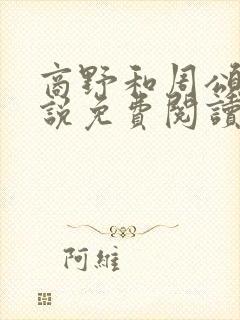 商野和周頌
說免費閱讀
阿維